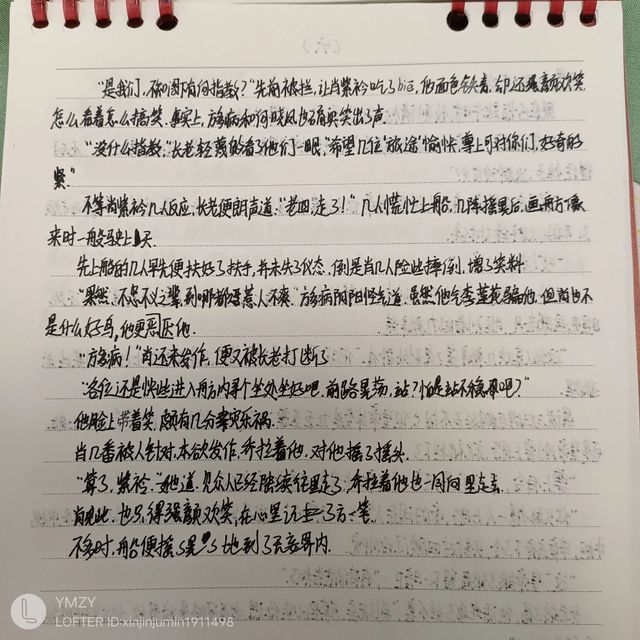 (六)
"是我们，不知阁下有何指教？"先前被拦，让肖紫衿吃了bie，他面色铁青，却还强颜欢笑，
怎么看着怎么搞笑。事实上，方多病和何晓凤也确实笑出了声。
"没什么指教，"长老轻蔑的看了他们一眼，"希望几位'旅途'愉快，尊上可对你们，好奇的
紧。"
不等肖紫衿几人反应，长老便朗声道："老四，走了！"几人慌忙上船，几阵摇晃后，画舫方像
来时一般驶上天。
先上船的几人早先便扶好了扶手，并未失了仪态，倒是肖几人险些摔倒，增了笑料
"果然，不忠不义之辈，到哪都惹人不爽。"方多病阴阳怪气道，虽然他气李莲花骗他，但肖也不
是什么好鸟，他更厌恶他。
"方多病！"肖还未发作，便又被长老打断了
"各位还是快些进入船内寻个坐处坐好吧，前路晃荡，站？怕是站不稳当吧？"
他脸上带着笑，颇有几分幸灾乐祸。
肖几番被人针对，本欲发作，乔拉着他，对他摇了摇头。
"算了，紫衿。"她道，见众人已经陆续往里走了，乔拉着他也一同向里走去
肖见此，也只得强颜欢笑，在心里记上了方一笔
不多时，船便摇摇晃晃地到了天玄界内.
YMZY
LOFTER ID:xinjinjumin1911498